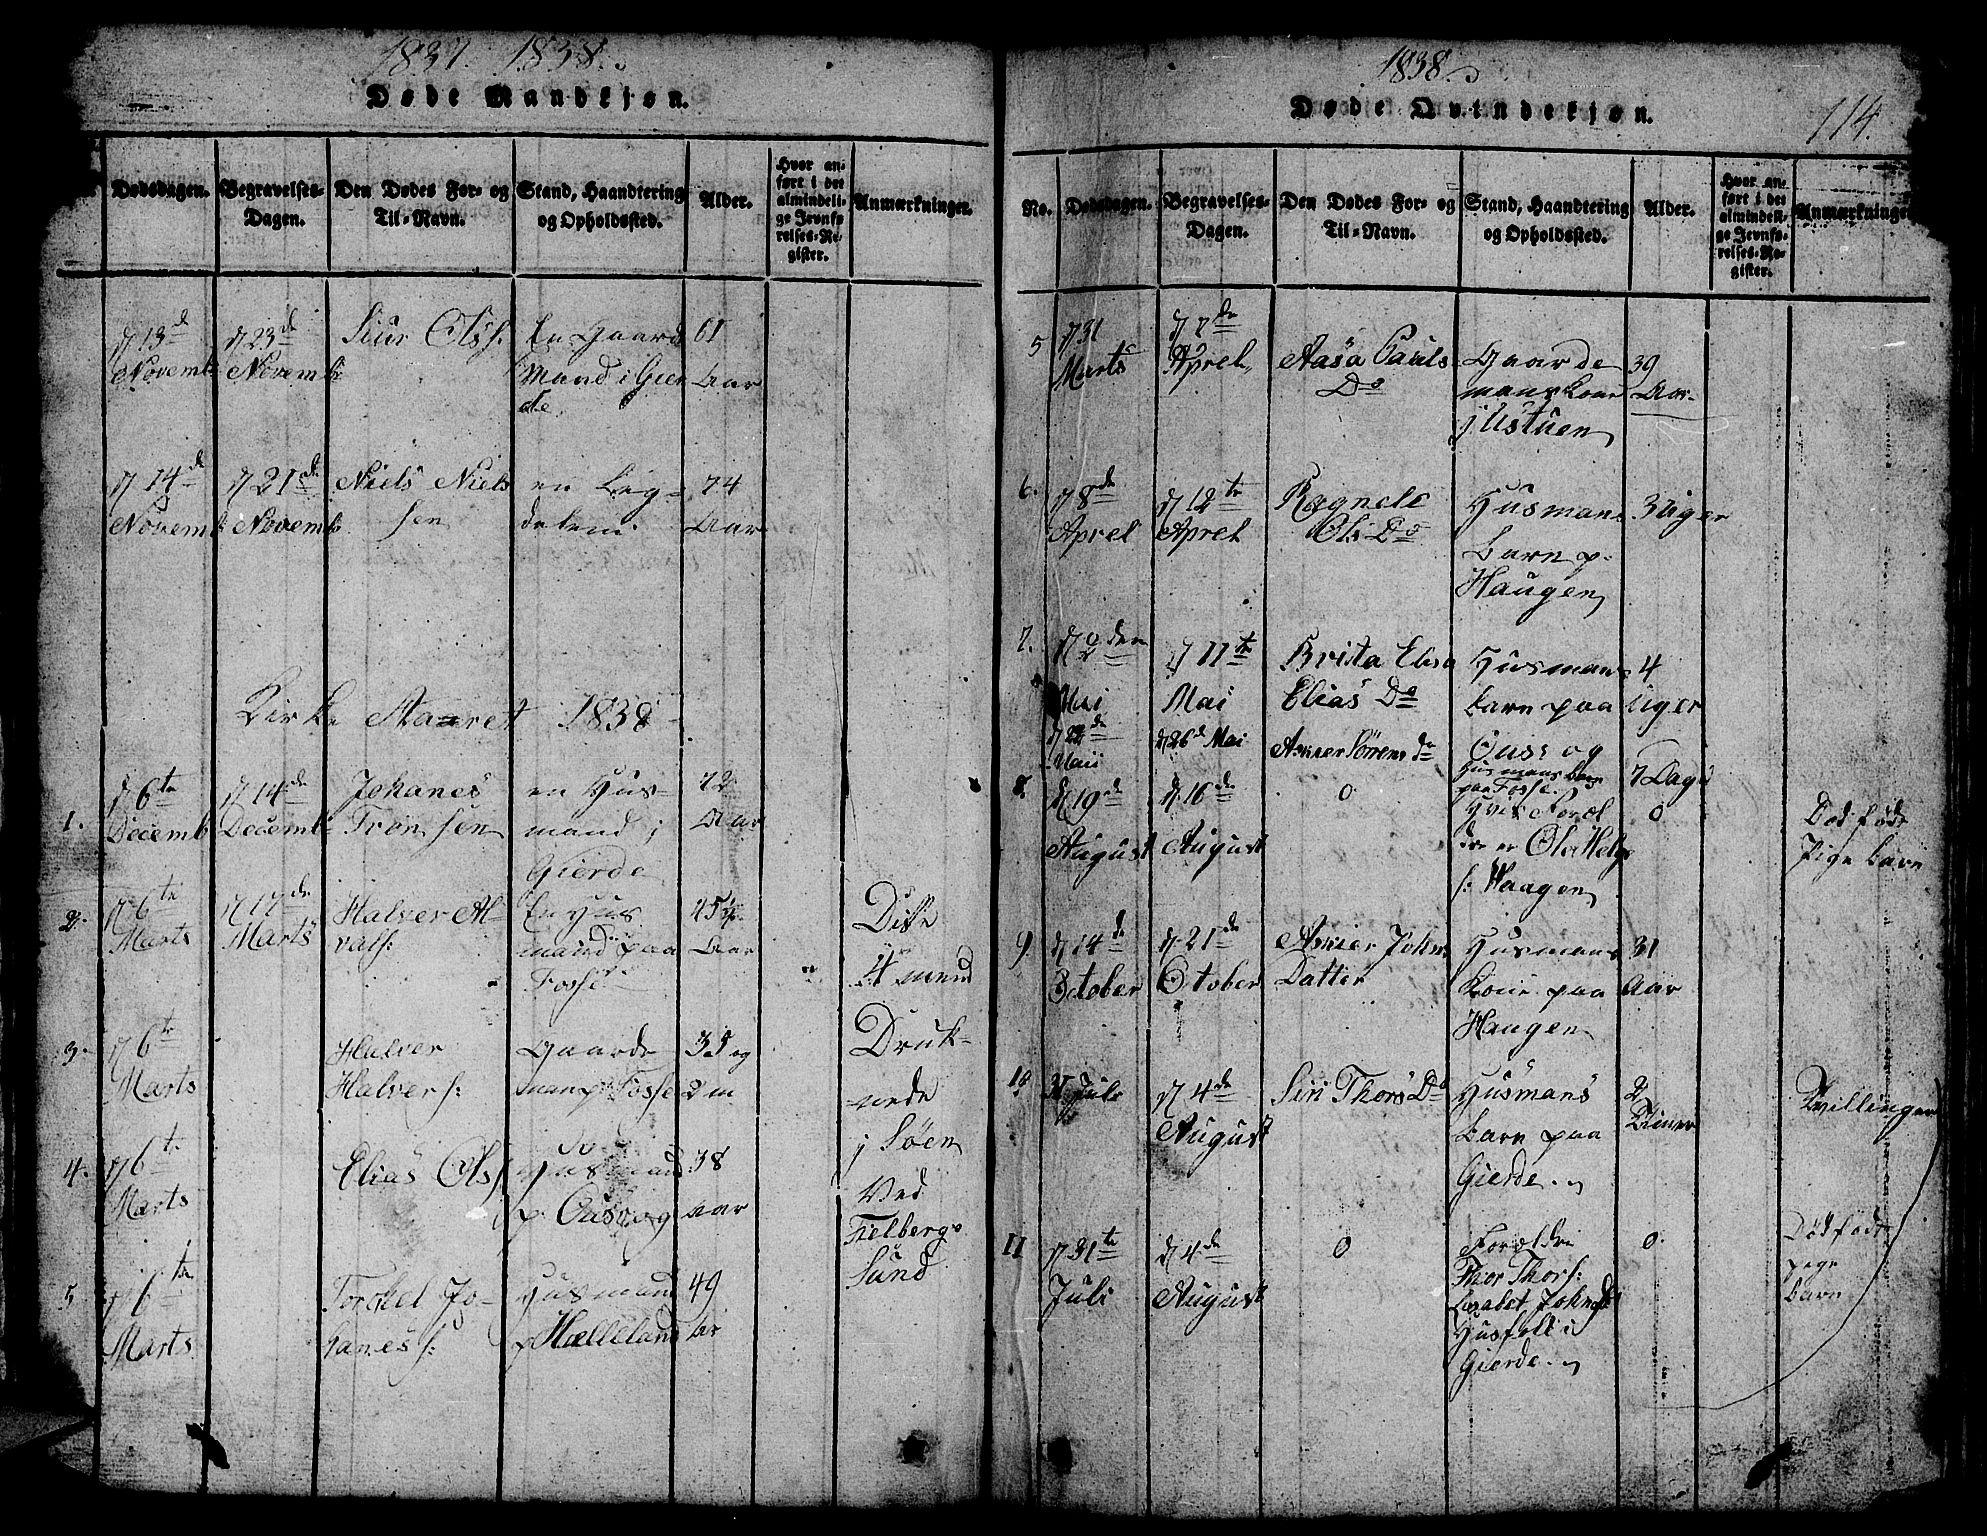 1837. 1838.
Døde Mandkjøn.
Dødsdagen.
Begravelses-
Dagen.
Den Dødes For- og
Til-Navn.
Stand, Haandtering
og Opholdssted.
Alder.
Hvor an-
ført i det
almindeli-
ge Jevnfø-
relses-Re-
gister.
Anmærkninger.
d 13d
Novemb:
d 23de
Novemb:
Siur Olss:
En Gaard
Mand i Gier
de
61
Aar
d 14de
Novemb:
d 21de
Novemb:
Niels Niels
sen
en Leg-
delem.
74
Aar
Kirke Aaaret 1838
1.
d 6te
Decemb
d 14de
Decemb:
Johanes
Tronsen
en Hus-
mand i
Gierde
72
Aar
2.
d 6te
Marts
d 17de
Marts
Halver Al-
vals:
En Hus
mand paa
Fosse
45
Aar
Disse
4 mend
Druk-
nede
i Søen
Ved
Fielbergs
Sund
3.
d 6te
Marts
Halver
Halvers:
Gaard
man p: Fosse
35 og
2 m
4.
d 6te
Marts
Elias Olss:
Husmand
p: Ousvog
38
aar
5
d 6te
Marts
Torckel Jo-
hanes s:
Husmand
p Hælleland
49
ar
1838.
114.
Døde Qvindekjøn.
No.
Dødsdagen.
Begravelses-
Dagen.
Den Dødes For- og
Til-Navn.
Stand, Haandtering
og Opholdssted.
Alder.
Hvor an-
ført i det
almindeli-
ge Jevnfø-
relses-Re-
gister.
Anmærkninger
5
d 31
Marts
d 7de
Aprel
Aasa Pauls
Do
Gaarde
mans kone
i Ustuen
39
Aar
6.
d 8de
Aprel
d 12te
Aprel
Ragnele
Ols Do
Husmans
barn p:
Haugen
3 Uger
7.
d 2den
Mai
d 11te
Mai
Brita Elisa
Elias Do
Husmans
barn paa
Ousvog
4
Uger
d 22de
Maii
d 26d Mai
Anner Sørens do
Husmans barn
paa Fosse
7 Dage
8.
d 19de
August
d 16de
August
0
Hvis Foræl
dre er Ole Helg
s: Haagen
0
Død født
Pige barn
9.
d 14de
October
d 21de
October
Anner Johns
Datter
Husmans
Kone paa
Haugen
31
Aar
10
31 Juli
d 4de
August
Siri Thors Do
Husmans
barn paa
Gierde
2
Timer
Tvillinger
11
d 31te
Juli
d 4de
August
0
Forældre
Thor Thors:
Lisabet Johns
Husfolk i
Gierde
0
Dødfødt
pege
barn